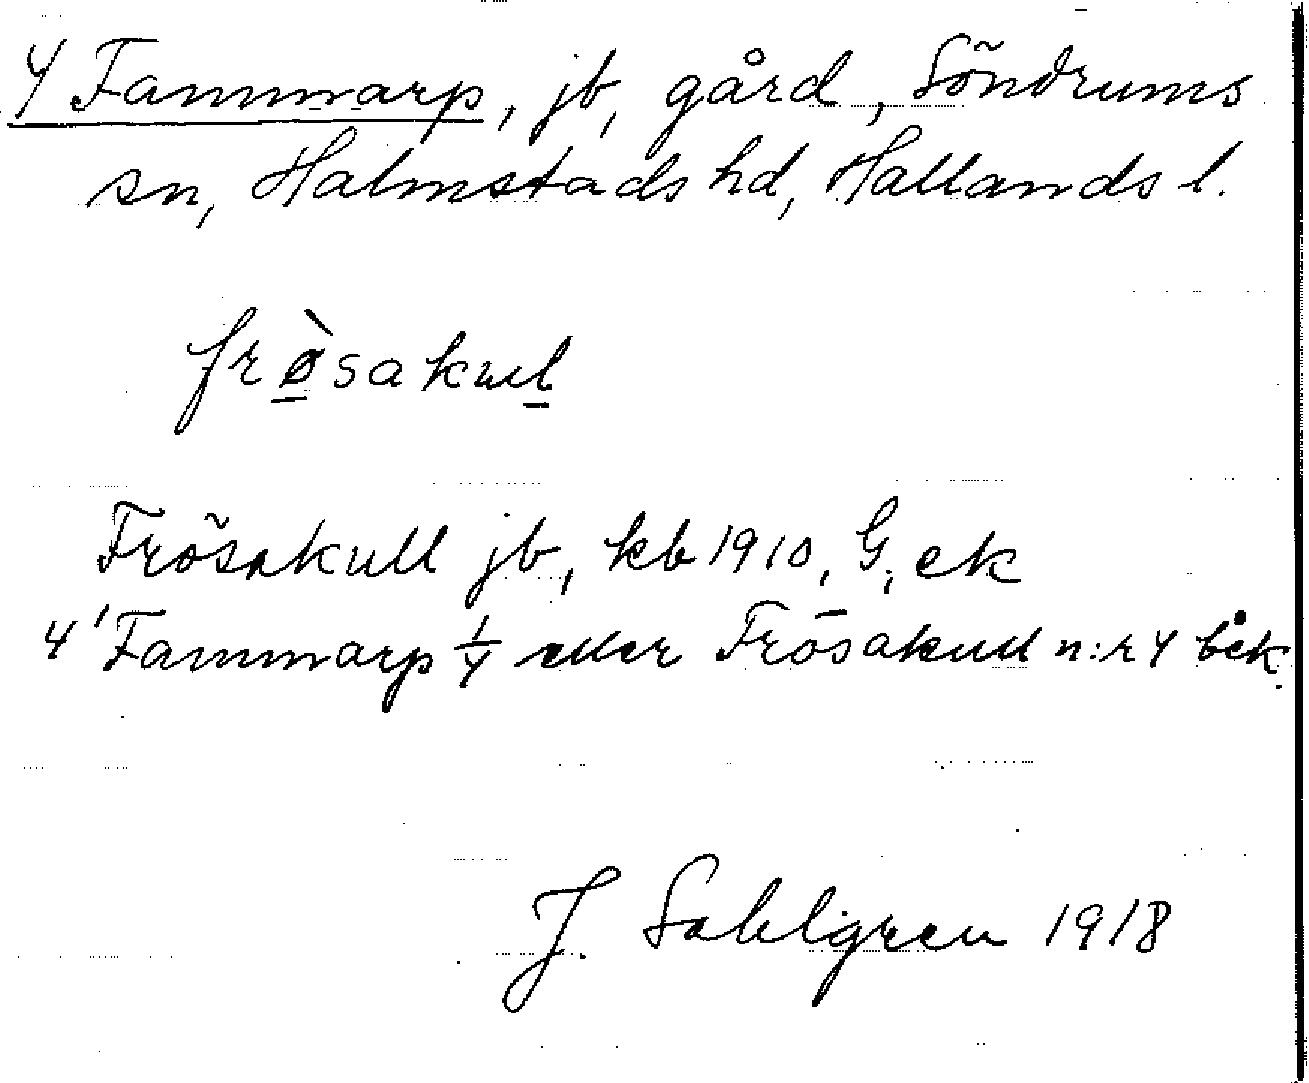 4 Fammarp, jb, gård, Söndrums
sn, Halmstads hd, Hallands l.
frø̀sakul
Frösakull jb, kb 1910, G, ek
4' Fammarp 1/4 eller Frösakull n:r 4
J. Sahlgren 1918